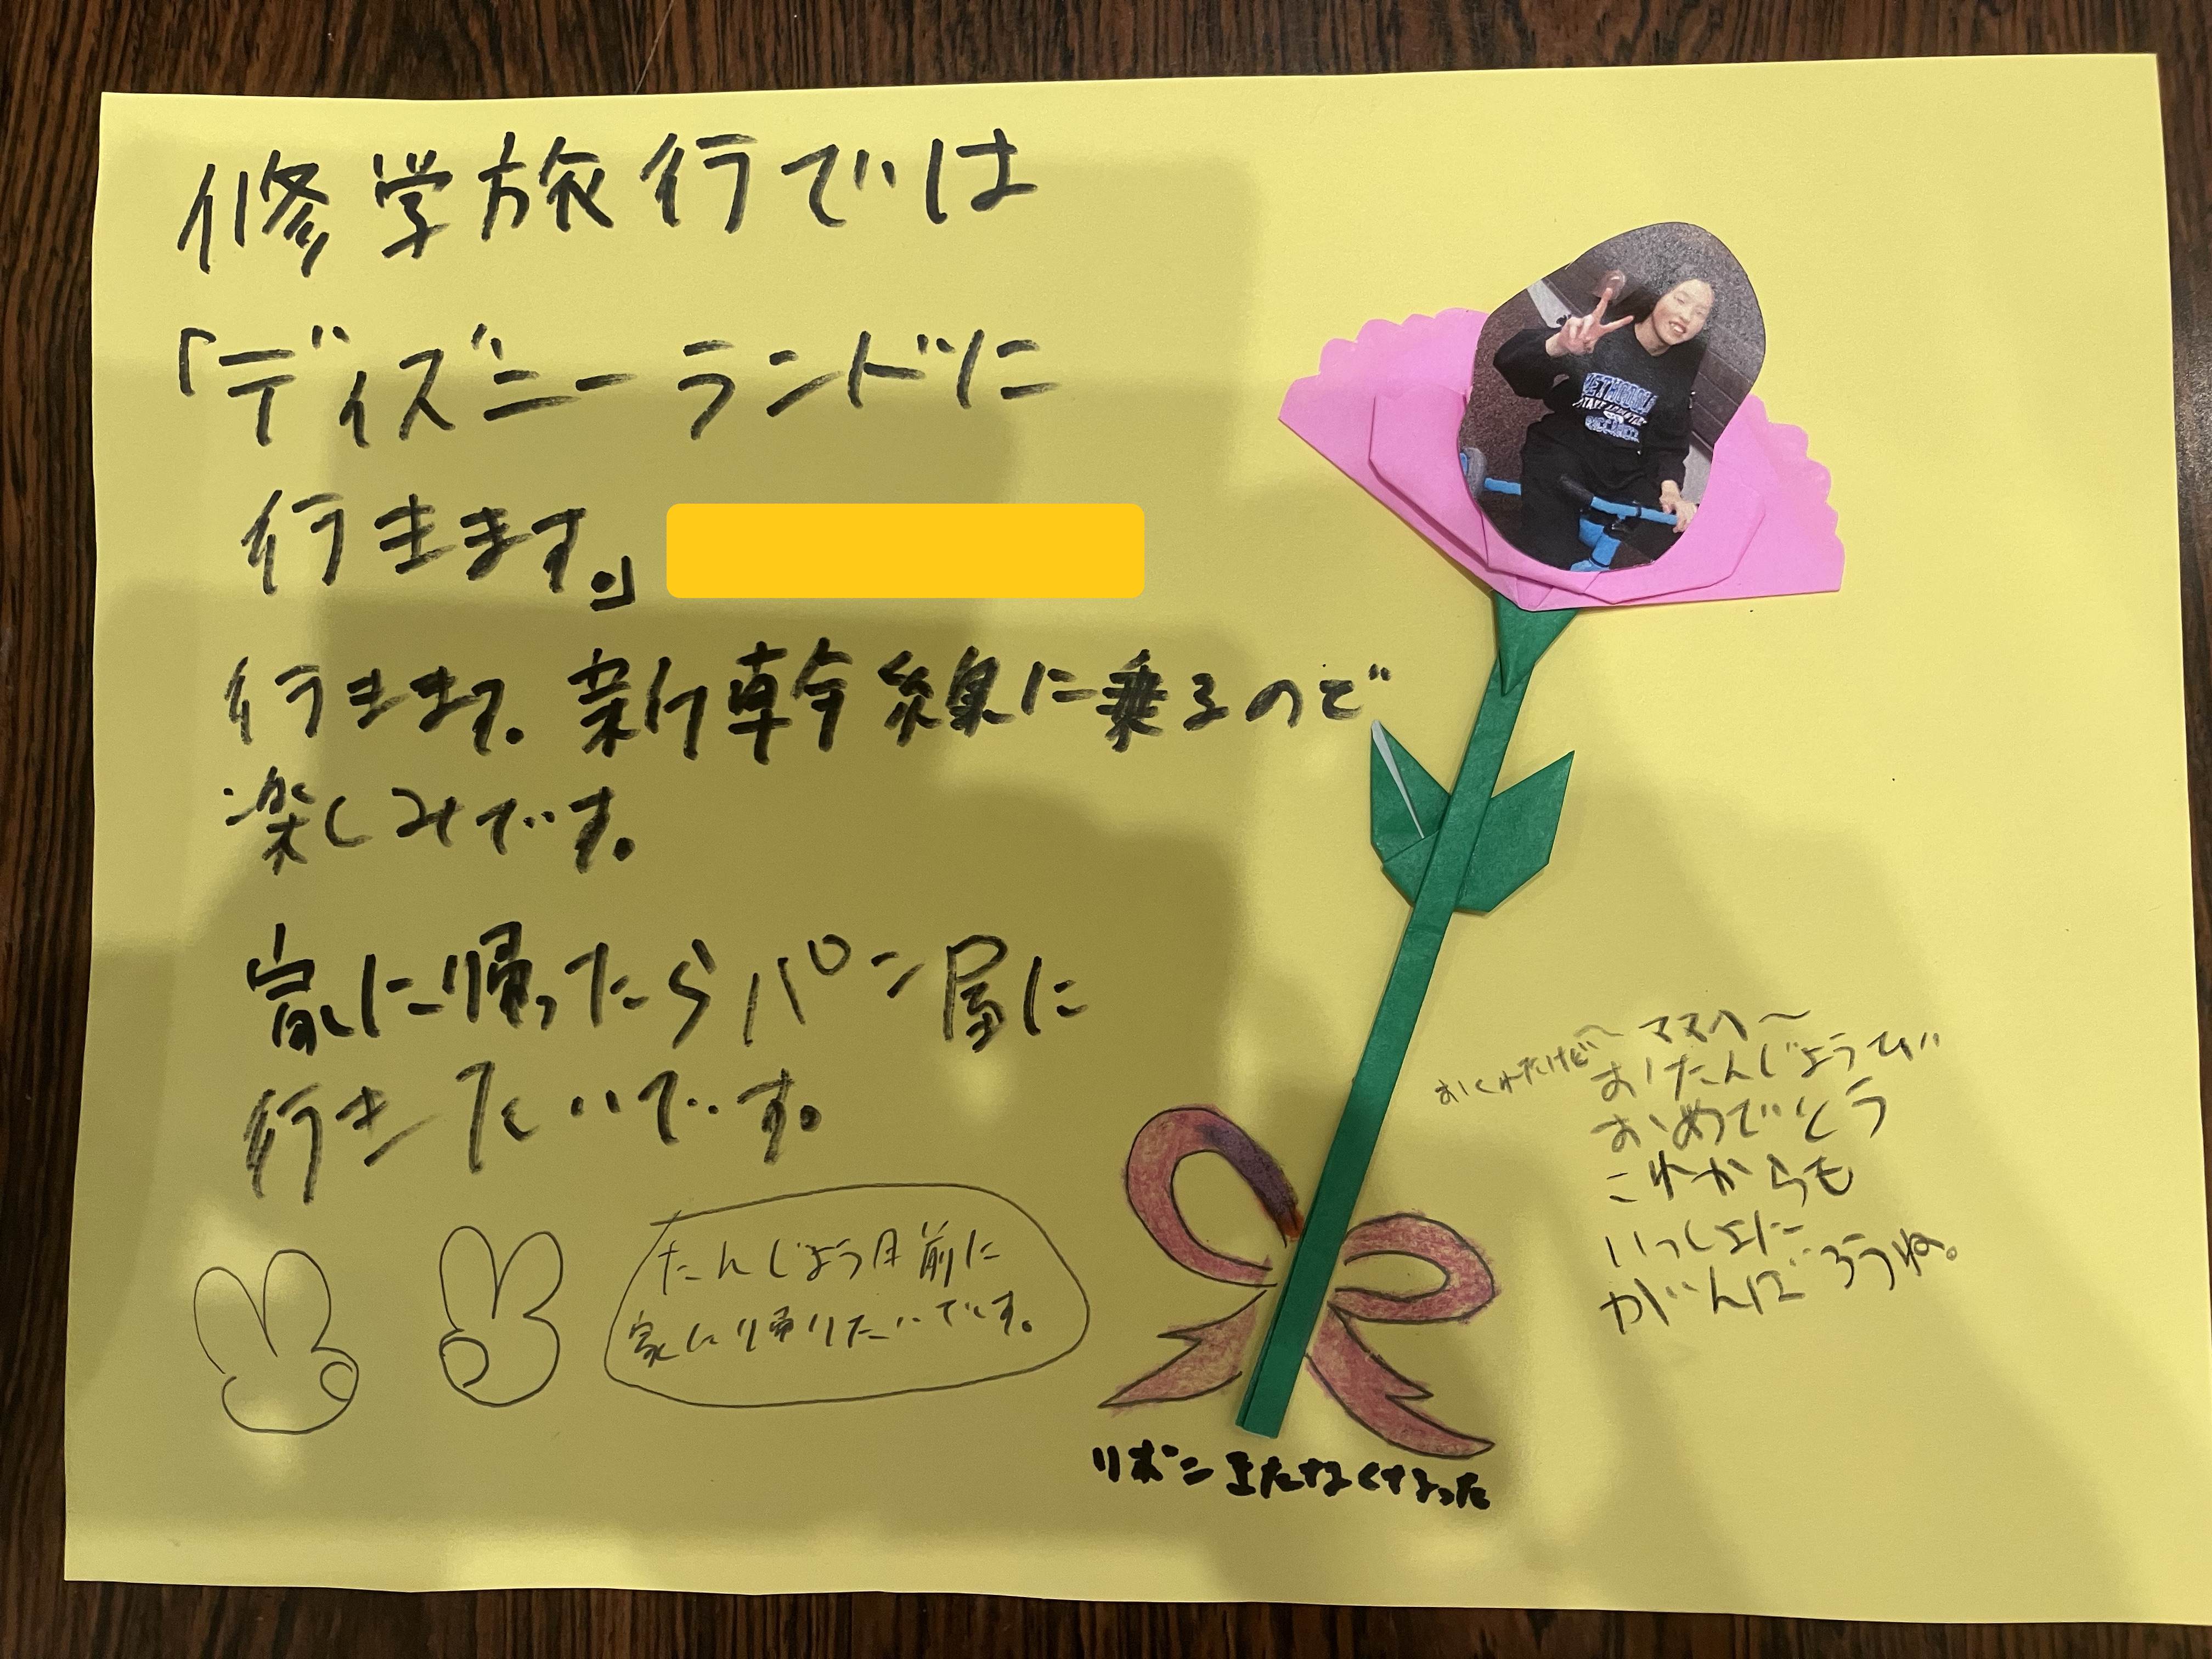 修学旅行では
「ディズニーランドに
行きます。」
行きます。新幹線に乗るので
楽しみです。
家に帰ったらパン屋に
行きたいです。
たんじょう日前に
家に帰りたいです。
～ママへ～
おくれたけど
おたんじょうび
おめでとう
これからも
いっしょに
がんばろうね。
リボンまたなくなった